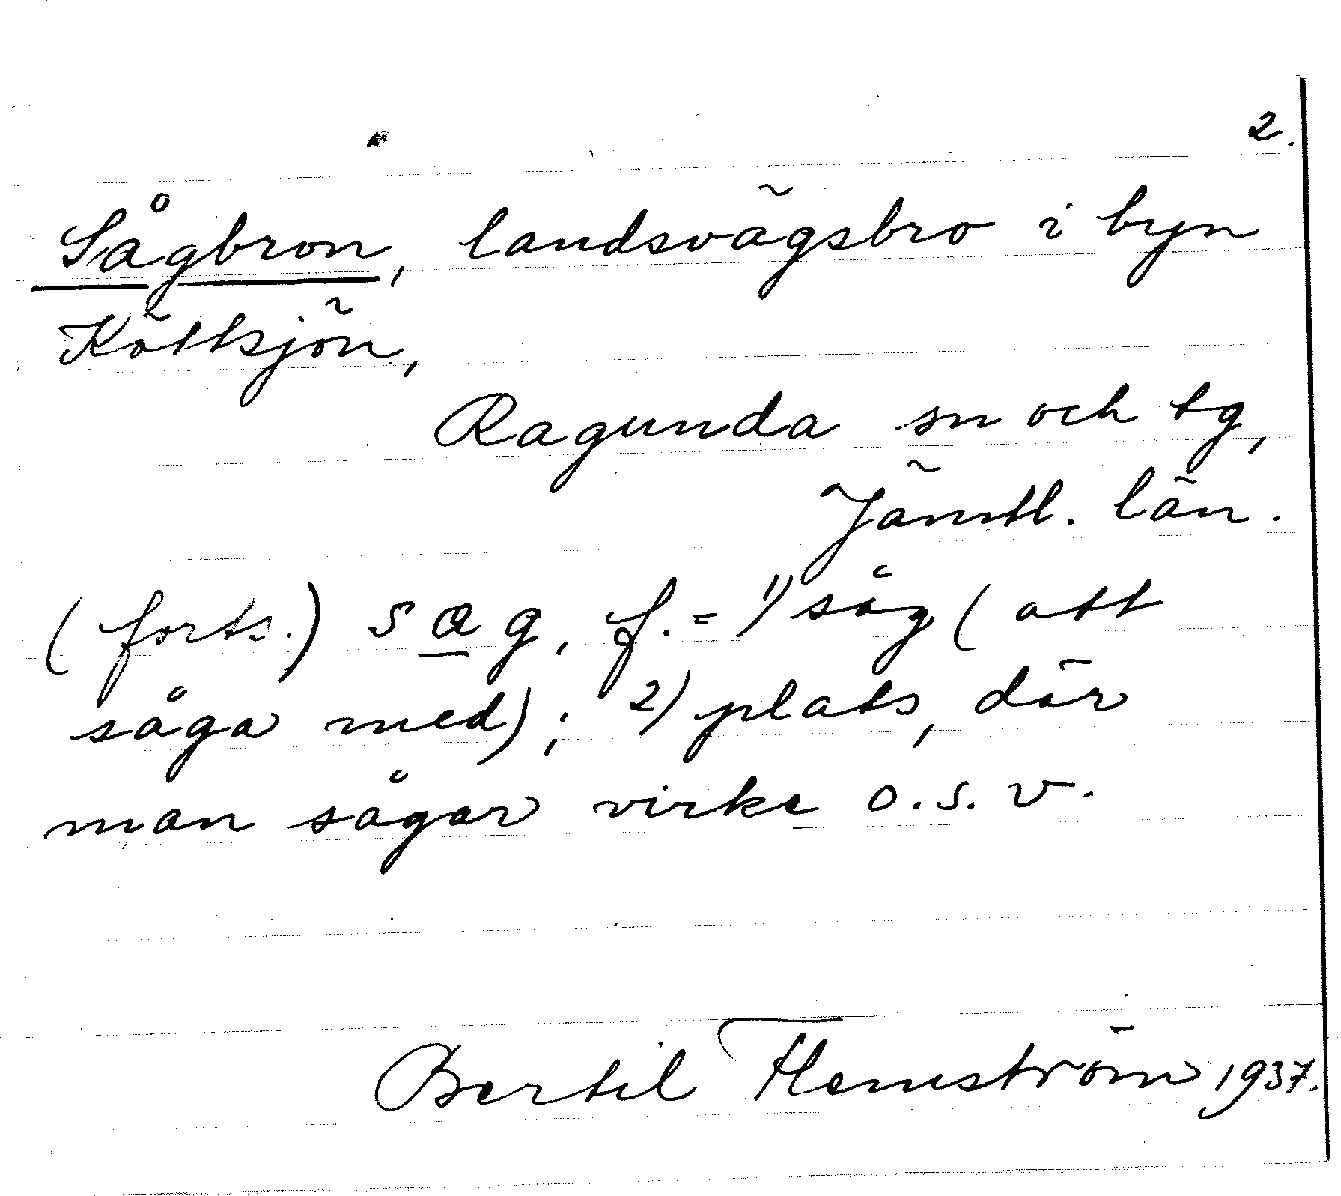 2.
Sågbron, landsvägsbro i byn
Köttsjön,
Ragunda sn och tg,
Jämtl. län.
(forts.) sag, f. = 1) såg (att
såga med); 2) plats, där
man sågar virke o.s.v.
Bertil Flemström 1937.